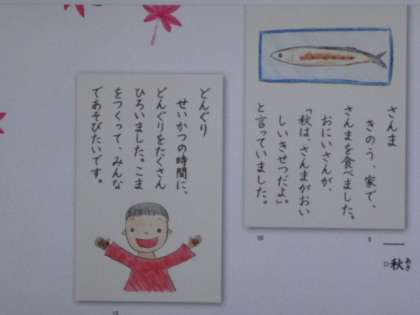 さんま
きのう、家で、
さんまを食べました。
おにいさんが、
「秋は、さんまがおい
しいきせつだよ。」
と言っていました。
どんぐり
せいかつの時間に、
どんぐりをたくさん
ひろいました。こま
をつくって、みんな
であそびたいです。
秋
あき